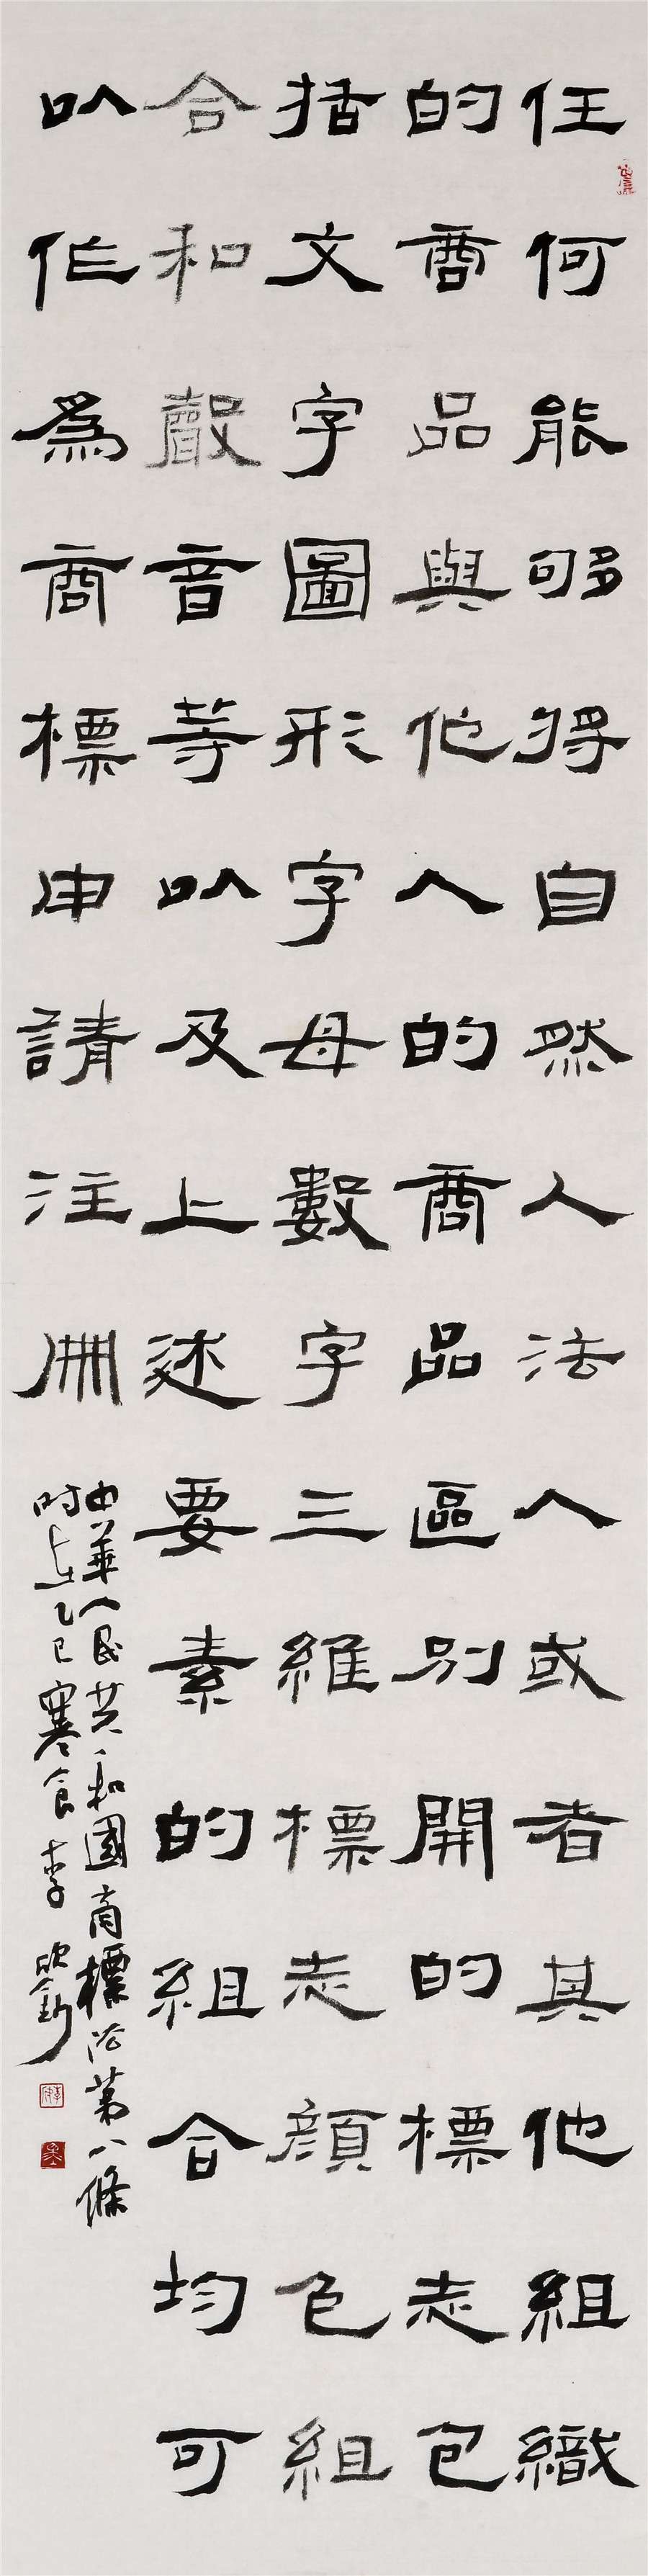 任何能够将自然人法人或者其他組織
的商品與他人的商品區別開的標志包
括文字圖形字母數字三維標志顔色組
合和聲音等以及上述要素的組合均可
以作為商標申請注冊
中華人民共和國商標法第八條
時在乙巳寒食李